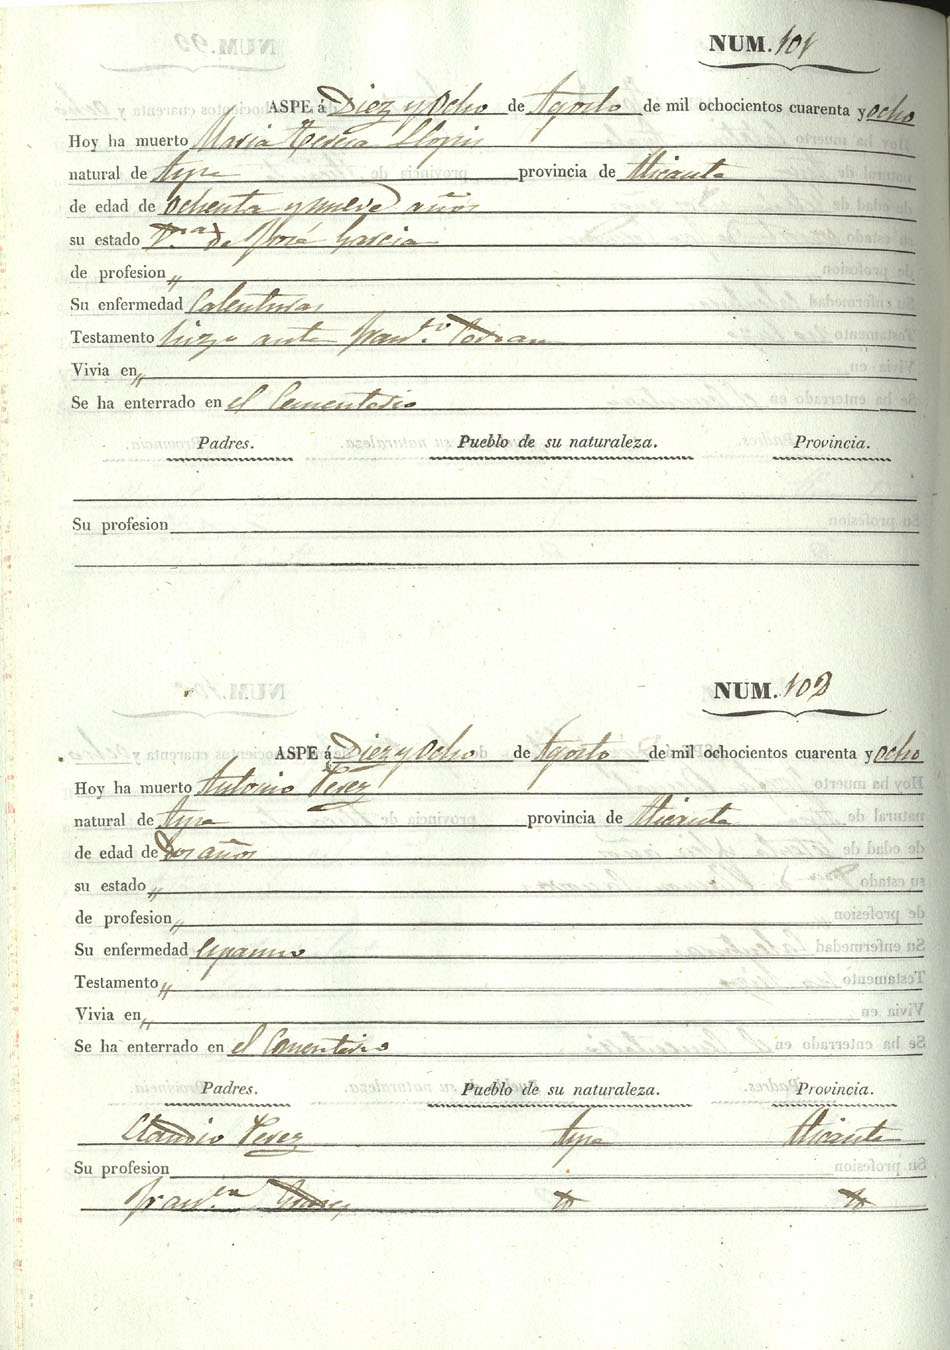 NUM. 101
ASPE á Diez y Ocho de Agosto de mil ochocientos cuarenta y ocho
Hoy ha muerto Maria Teresa Llopis
natural de Aspe provincia de Alicante
de edad de ochenta y nueve años
su estado V.ª de José Garcia
de profesion „
Su enfermedad Calenturas
Testamento hizo ante Fran.co
Vivia en „
Se ha enterrado en el Cementerio
Padres. Pueblo de su naturaleza. Provincia.
Su profesion
NUM. 102
ASPE á Diez y Ocho de Agosto de mil ochocientos cuarenta y ocho
Hoy ha muerto Antonio Perez
natural de Aspe provincia de Alicante
de edad de Dos años
su estado „
de profesion „
Su enfermedad
Testamento „
Vivia en „
Se ha enterrado en el Cementerio
Padres. Pueblo de su naturaleza. Provincia.
Claudio Perez Aspe Alicante
Su profesion